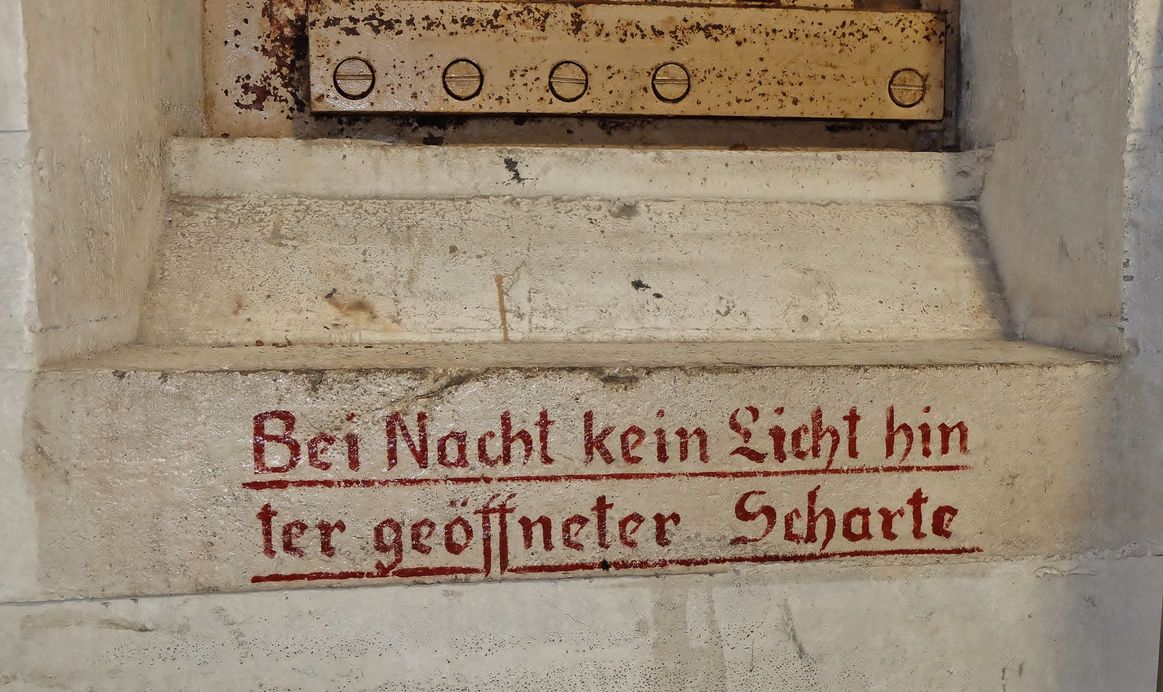 Bei Nacht kein Licht hin
ter geöffneter Scharte